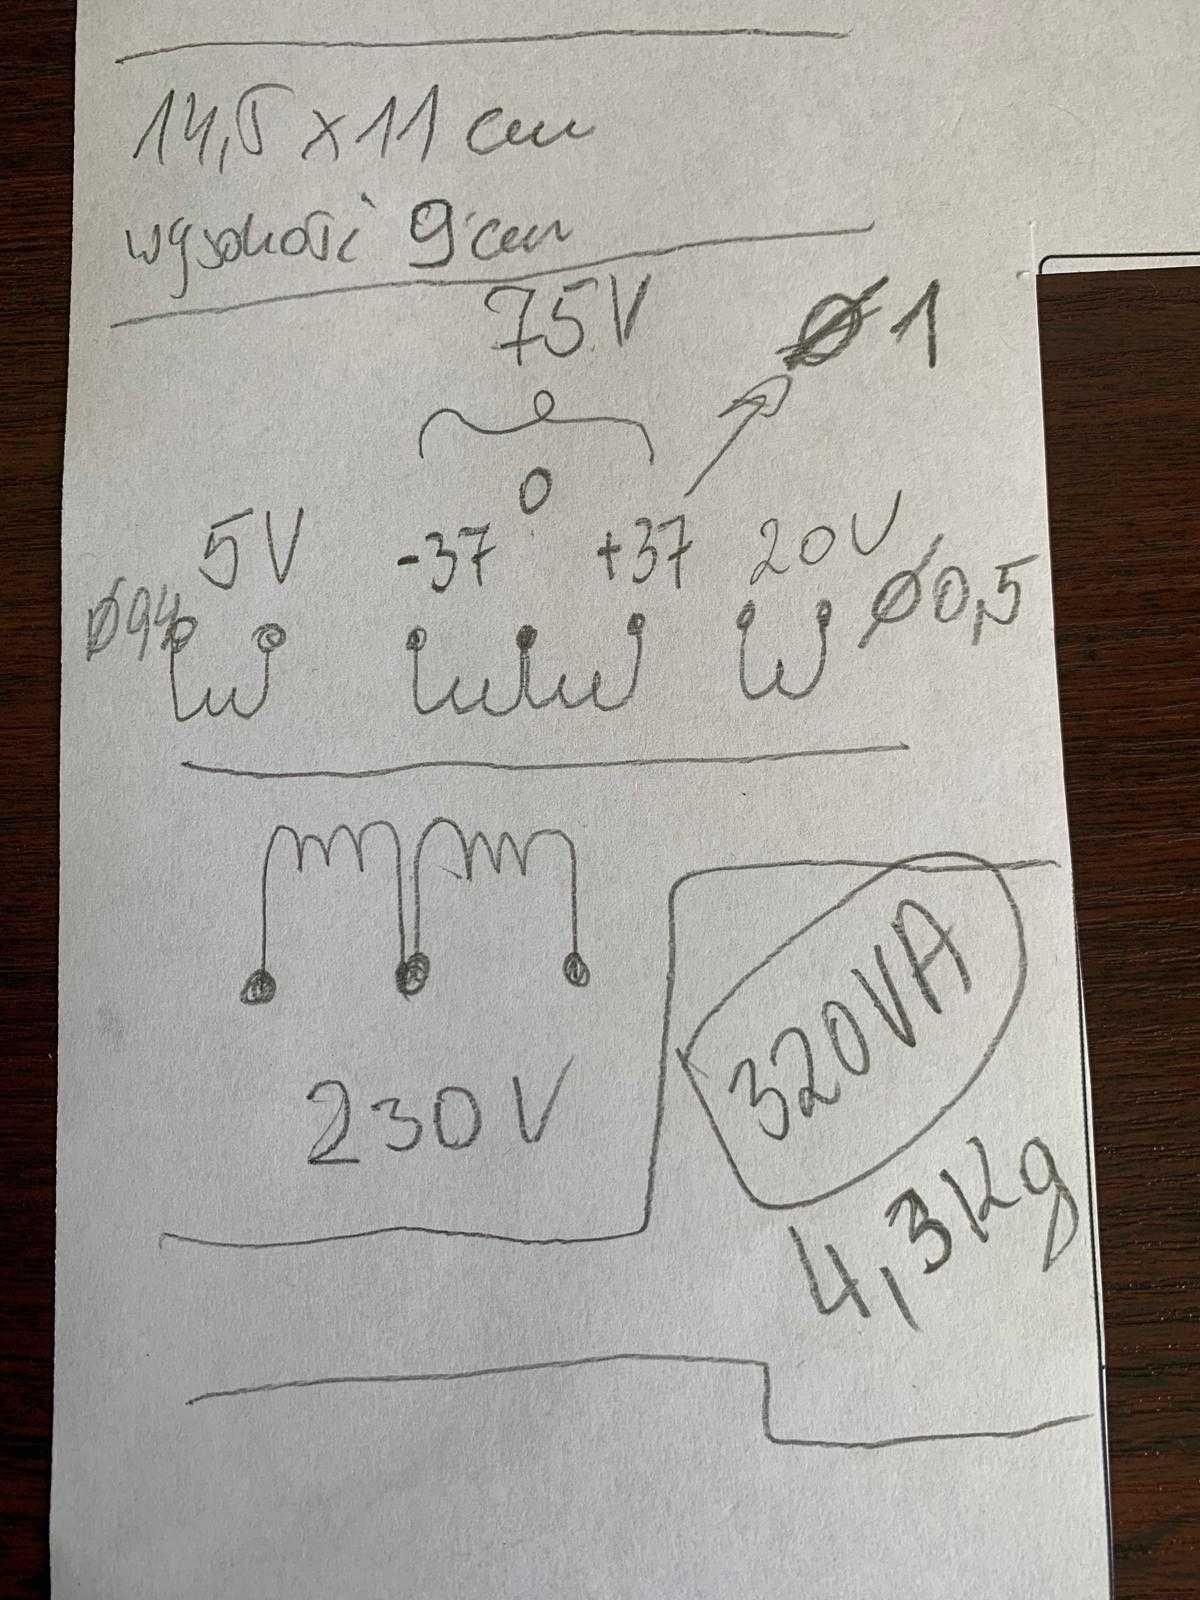 14,5 x 11 cm
wysokość 9 cm
75V
Ø 1
0
5V -37 +37 20V
Ø0,5
230V
320VA
4,3Kg